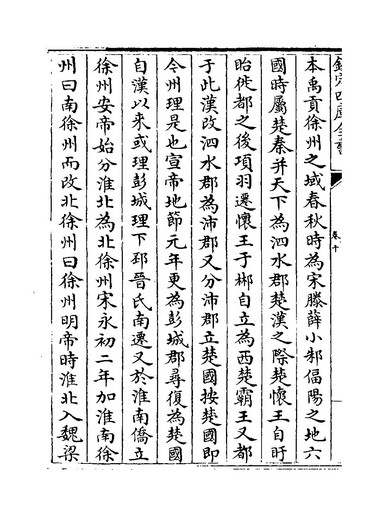 欽定四庫全書
卷十
本禹貢徐州之域春秋時為宋滕薛小邾偪陽之地六
國時屬楚秦并天下為泗水郡楚漢之際楚懷王自盱
眙徙都之後項羽遷懷王于郴自立為西楚霸王又都
于此漢改泗水郡為沛郡又分沛郡立楚國按楚國即
今州理是也宣帝地節元年更為彭城郡尋復為楚國
自漢以来或理彭城理下邳晉氏南遷又於淮南僑立
徐州安帝始分淮北為北徐州宋永初二年加淮南徐
州曰南徐州而改北徐州曰徐州明帝時淮北入魏梁